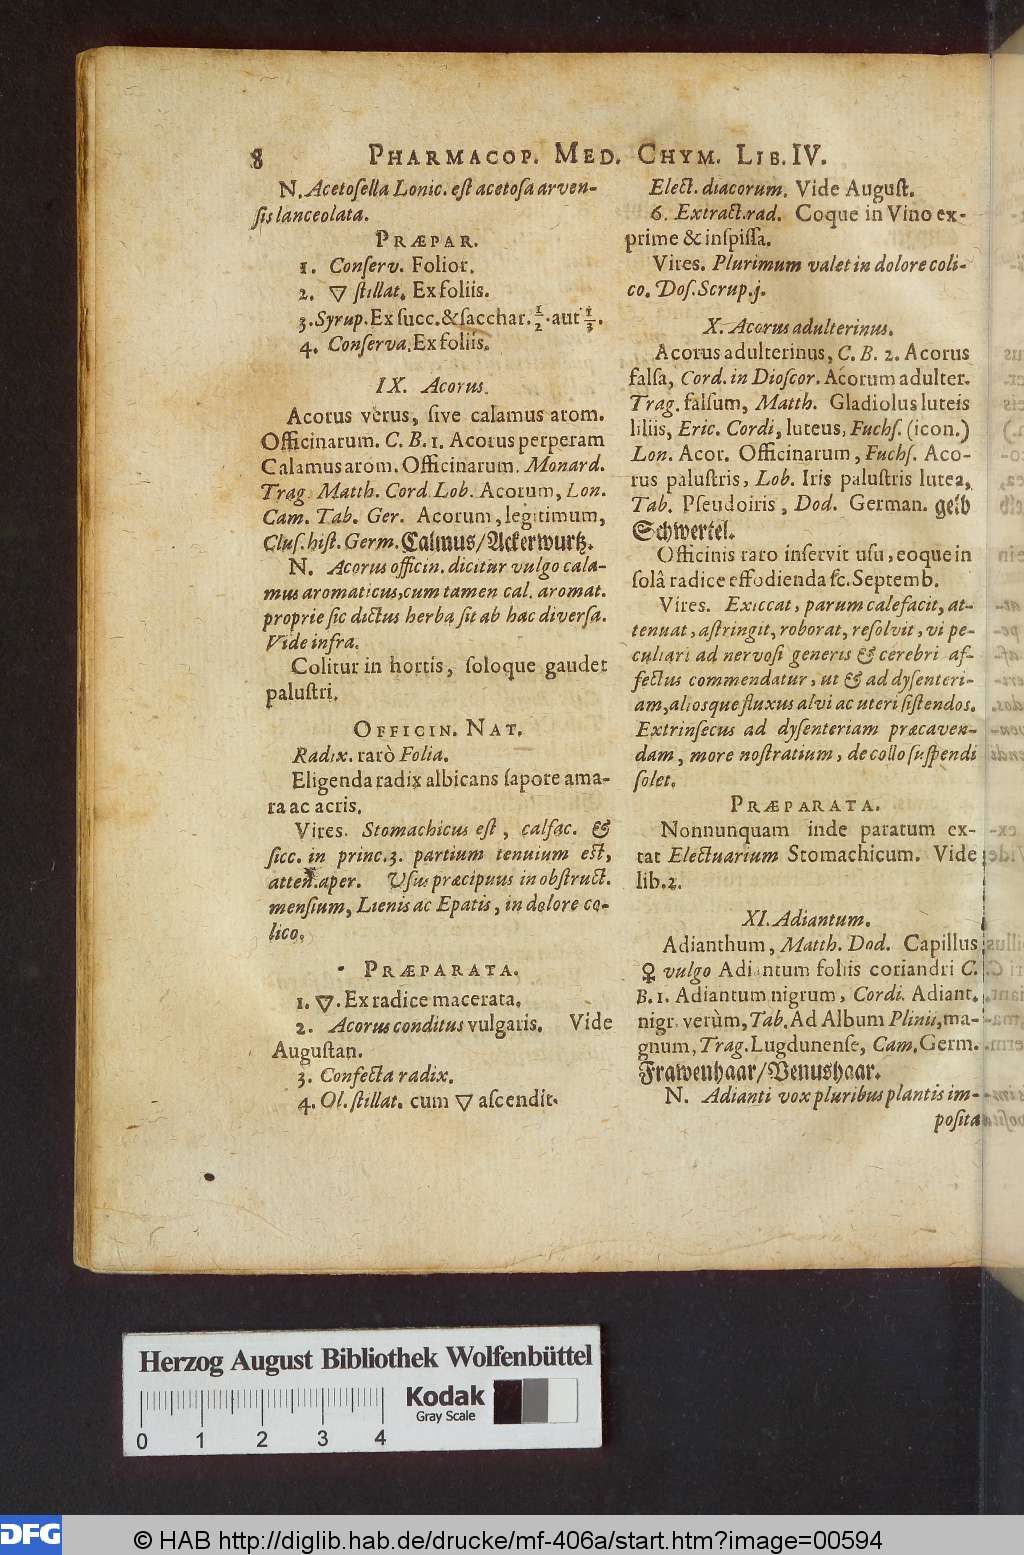 8 PHARMACOP. MED. CHYM. LIB. IV.
N. Acetoſella Lonic. eſt acetoſa arven-
ſis lanceolata.
PRÆPAR.
1. Conſerv. Folior.
2. ▽ ſtillat. Ex foliis.
3. Syrup. Ex ſucc. & ſacchar. ½. aut ⅓.
4. Conſerva. Ex foliis.
IX. Acorus.
Acorus verus, ſive calamus arom.
Officinarum. C. B. 1. Acorus perperam
Calamus arom. Officinarum. Monard.
Trag. Matth. Cord. Lob. Acorum, Lon.
Cam. Tab. Ger. Acorum, legitimum,
Cluſ. hiſt. Germ. Calmus/Ackerwurtz.
N. Acorus officin. dicitur vulgo cala-
mus aromaticus, cum tamen cal. aromat.
proprie ſic dictus herba ſit ab hac diverſa.
Vide infra.
Colitur in hortis, ſoloque gaudet
paluſtri.
OFFICIN. NAT.
Radix. rarò Folia.
Eligenda radix albicans ſapore ama-
ra ac acris.
Vires. Stomachicus eſt, calfac. &
ſicc. in princ. 3. partium tenuium eſt,
atten. aper. Uſus præcipuus in obſtruct.
menſium, Lienis ac Epatis, in dolore co-
lico.
PRÆPARATA.
1. ▽. Ex radice macerata.
2. Acorus conditus vulgaris. Vide
Auguſtan.
3. Confecta radix.
4. Ol. ſtillat. cum ▽ aſcendit.
Elect. diacorum. Vide Auguſt.
6. Extract. rad. Coque in Vino ex-
prime & inſpiſſa.
Vires. Plurimum valet in dolore coli-
co. Doſ. Scrup. j.
X. Acorus adulterinus.
Acorus adulterinus, C. B. 2. Acorus
falſa, Cord. in Dioſcor. Acorum adulter.
Trag. falſum, Matth. Gladiolus luteis
liliis, Eric. Cordi, luteus, Fuchſ. (icon.)
Lon. Acor. Officinarum, Fuchſ. Aco-
rus paluſtris, Lob. Iris paluſtris lutea,
Tab. Pſeudoiris, Dod. German. gelb
Schwertel.
Officinis raro inſervit uſu, eoque in
ſolâ radice effodienda ſc. Septemb.
Vires. Exiccat, parum calefacit, at-
tenuat, aſtringit, roborat, reſolvit, vi pe-
culiari ad nervoſi generis & cerebri af-
fectus commendatur, ut & ad dyſenteri-
am, aliosque fluxus alvi ac uteri ſiſtendos.
Extrinſecus ad dyſenteriam præcaven-
dam, more noſtratium, de collo ſuſpendi
ſolet.
PRÆPARATA.
Nonnunquam inde paratum ex-
tat Electuarium Stomachicum. Vide
lib. 2.
XI. Adiantum.
Adianthum, Matth. Dod. Capillus
♀ vulgo Adiantum foliis coriandri C.
B. 1. Adiantum nigrum, Cordi. Adiant.
nigr. verùm, Tab. Ad Album Plinii, ma-
gnum, Trag. Lugdunenſe, Cam. Germ.
Frawenhaar/Venushaar.
N. Adianti vox pluribus plantis im-
poſita
Herzog August Bibliothek Wolfenbüttel
Kodak
Gray Scale
0 1 2 3 4
DFG
© HAB http://diglib.hab.de/drucke/mf-406a/start.htm?image=00594